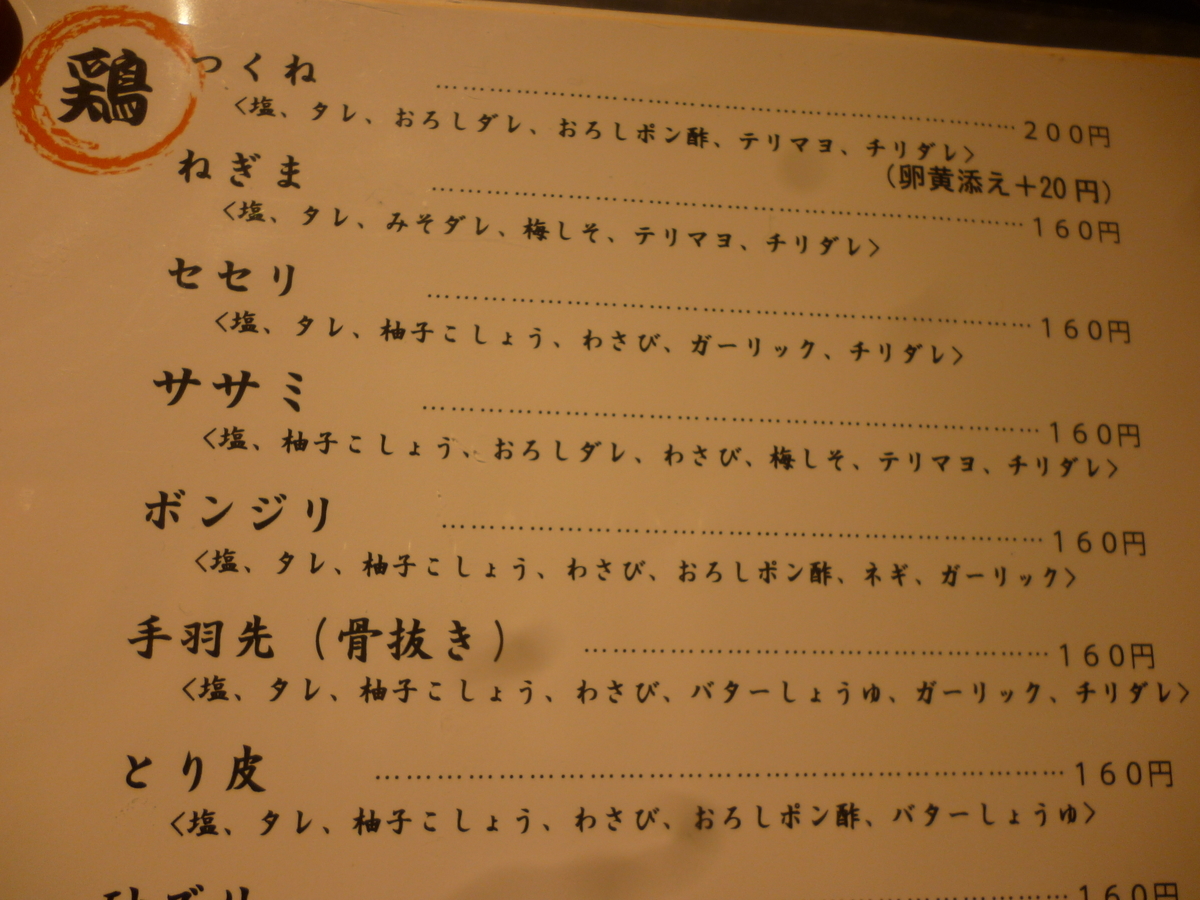 鶏
つくね ………………………………………………… 200円
〈塩、タレ、おろしダレ、おろしポン酢、テリマヨ、チリダレ〉
（卵黄添え＋20円）
ねぎま ………………………………………………… 160円
〈塩、タレ、みそダレ、梅しそ、テリマヨ、チリダレ〉
セセリ ………………………………………………… 160円
〈塩、タレ、柚子こしょう、わさび、ガーリック、チリダレ〉
ササミ ………………………………………………… 160円
〈塩、柚子こしょう、おろしダレ、わさび、梅しそ、テリマヨ、チリダレ〉
ボンジリ ………………………………………………… 160円
〈塩、タレ、柚子こしょう、わさび、おろしポン酢、ネギ、ガーリック〉
手羽先（骨抜き） ……………………………………… 160円
〈塩、タレ、柚子こしょう、わさび、バターしょうゆ、ガーリック、チリダレ〉
とり皮 ………………………………………………… 160円
〈塩、タレ、柚子こしょう、わさび、おろしポン酢、バターしょうゆ〉
160円